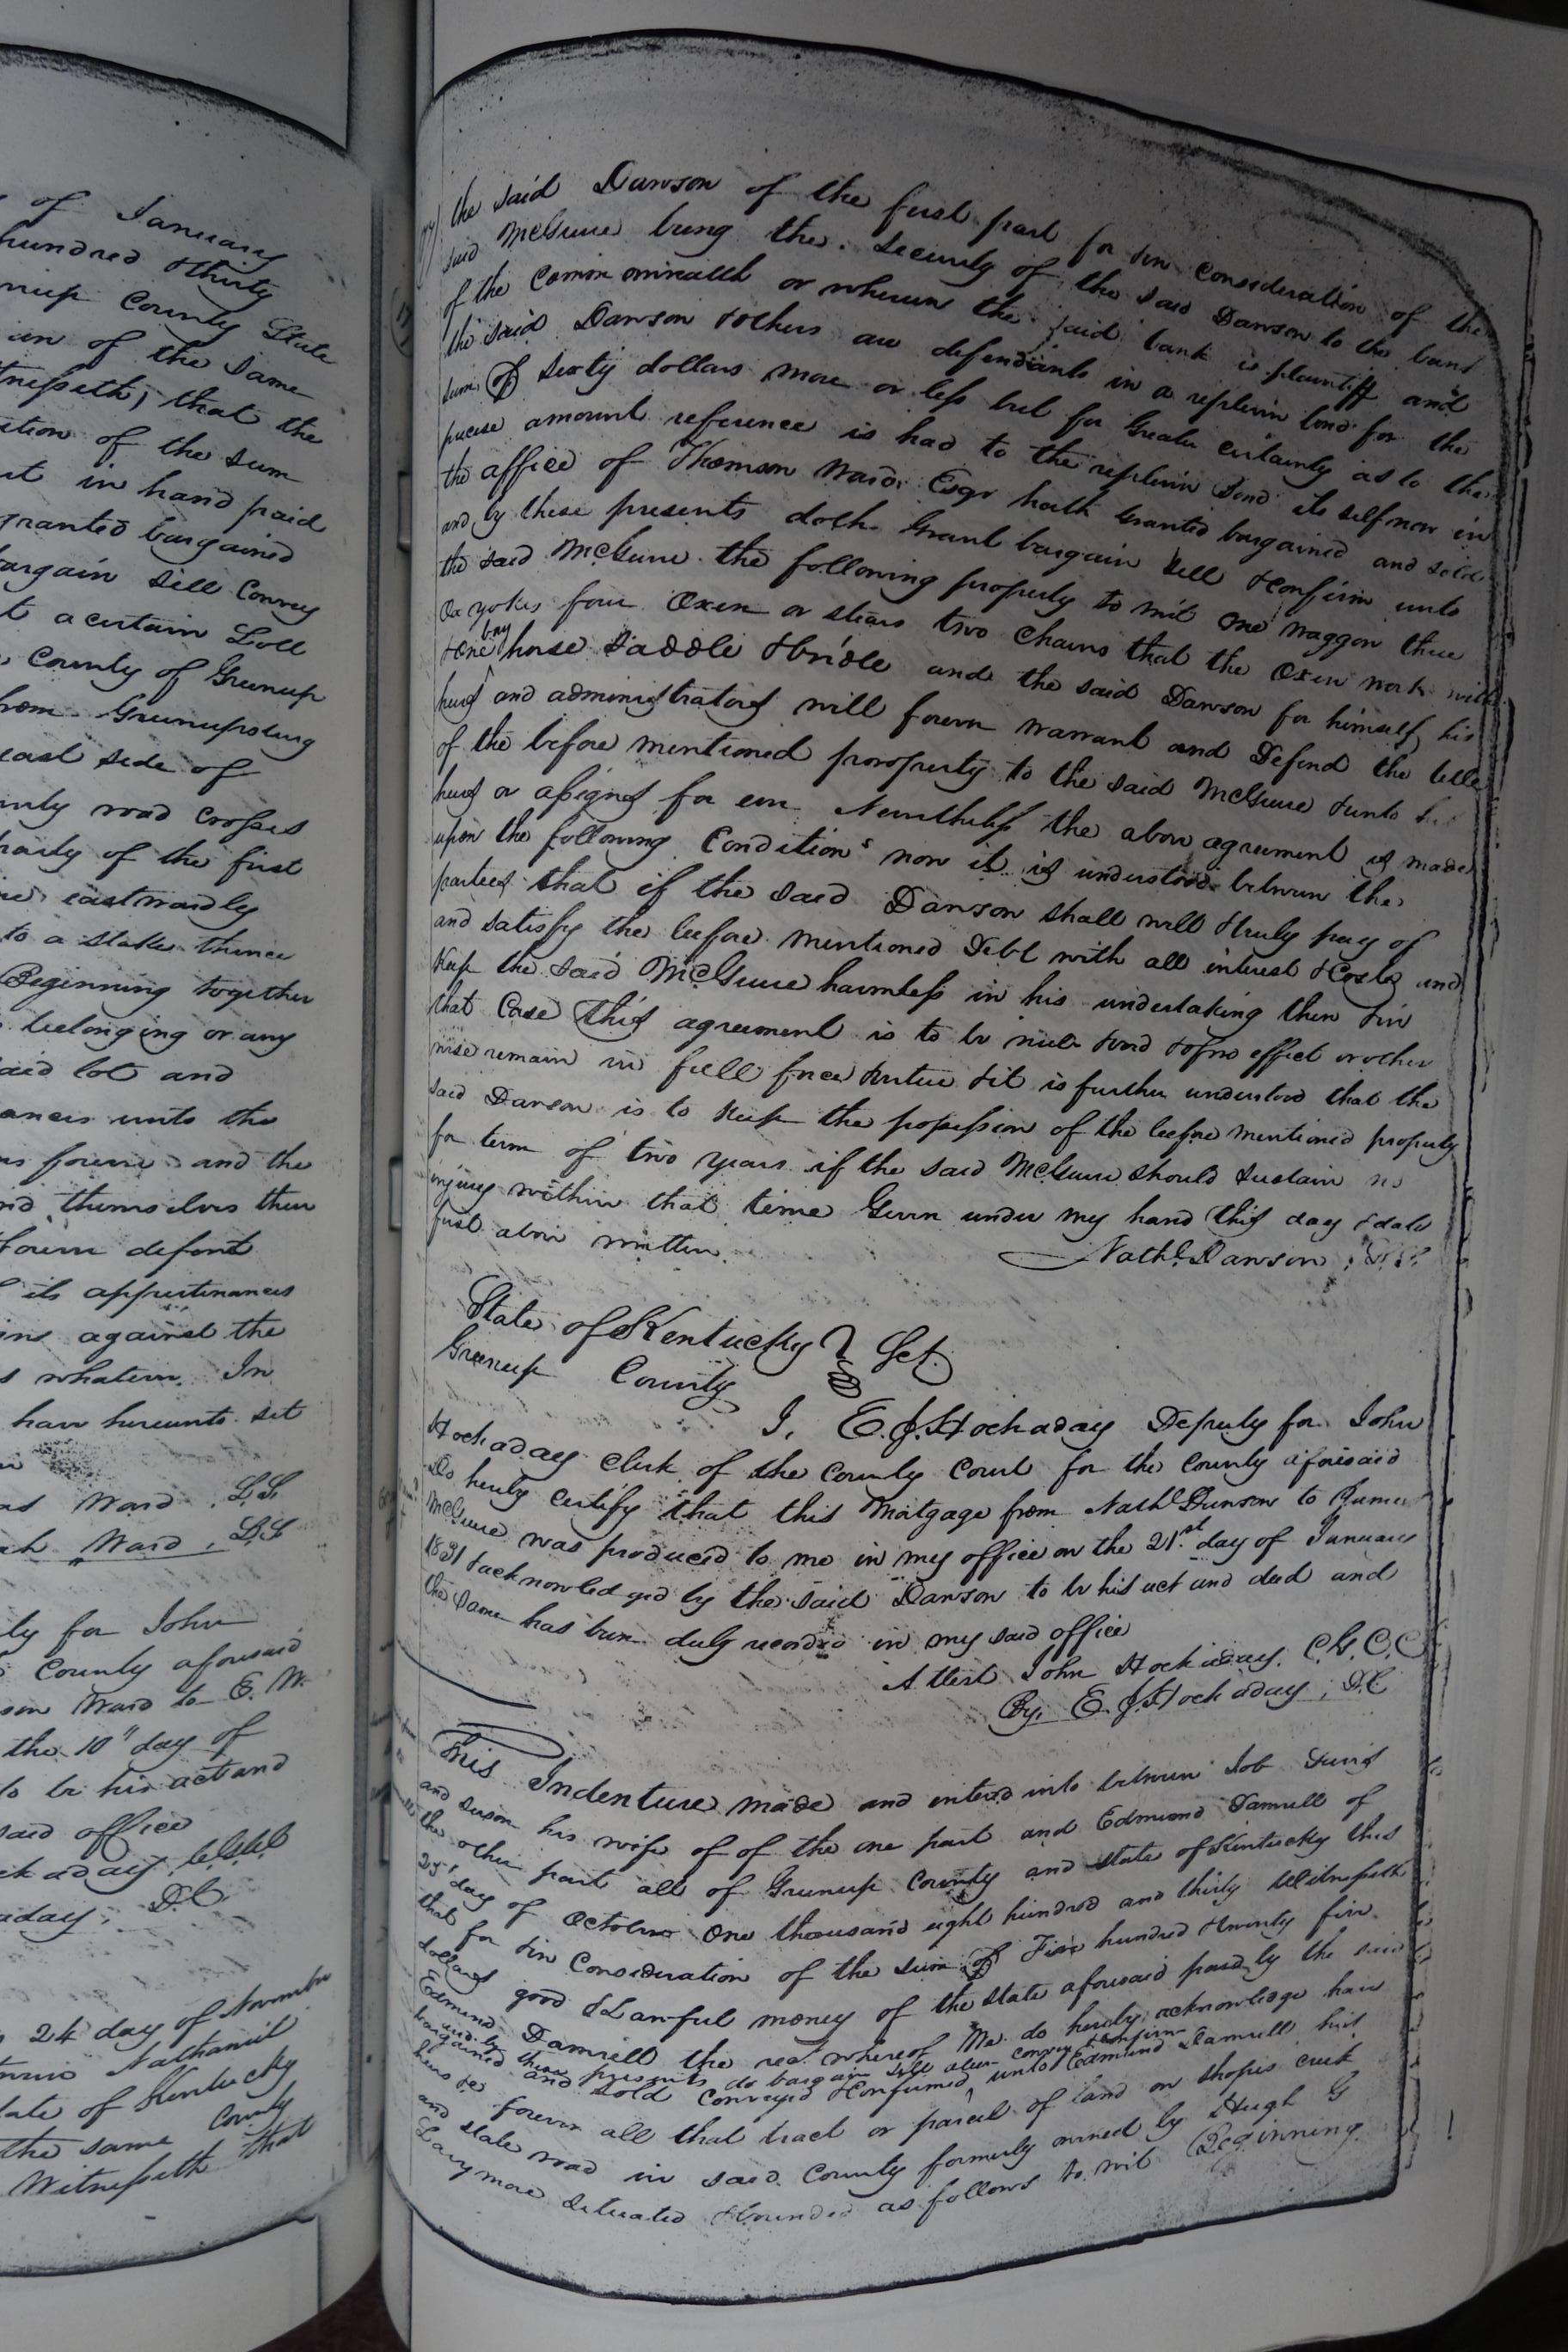 of January
hundred & thirty
nup County State
an of the same
tnesseth, that the
ation of the sum
nt in hand paid
granted bargained
bargain sell Convey
t a certain Lott
County of Greenup
from Greenupsburg
east side of
unty road crosses
party of the first
eastwardly
to a stake thence
Beginning together
belonging or any
said lot and
ances unto the
forever and the
nd themselves their
forever defend
its appurtenances
ims against the
s whatever. In
have hereunto set
Ward . L.S
ah Ward . L.S
ty for John
County aforesaid
son Ward to E. W.
the 10" day of
to be his act and
said office
ckaday
aday; D.C.
24 day of November
Nathaniel
tate of Kentucky
the same County
Witnesseth that
the said Dawson of the first part for & in consideration of the
said McGuire being the security of the said Dawson to the bank
of the Common omwealth or wherein the said bank is plaintiff and
the said Dawson & others are defendants in a replevin bond for the
sum of sixty dollars more or less but for Greater certainty as to the
precise amount reference is had to the replevin bond its self now in
the office of Thomson Ward Esqr hath Granted bargained and sold
and by these presents doth Grant bargain sell & confirm unto
the said McGuire the following property to wit one waggon three
Ox yokes four Oxen or stears two Chains that the Oxen work with
& one bay horse saddle & bridle and the said Dawson for himself his
heirs and administrators will forever warrant and Defend the title
of the before mentioned proropserty to the said McGuire & unto his
heirs or assigns for ever Nevertheless the above agreement is made
upon the following Conditions now it is understood between the
parties that if the said Dawson shall well & truly pay of
and satisfy the before mentioned Debt with all interest & Costs and
Keep the said McGuire harmless in his undertaking then & in
that Case this agreement is to be null & void & of no effect or other
wise remain in full force & virtue & it is further understood that the
said Dawson is to Keep the possession of the before mentioned property
for term of two years if the said McGuire should sustain no
injury within that time Given under my hand this day & date
first above written
Nathl. Dawson
State of Kentucky } Sct.
Greenup County
I, E. J. Hockaday Deputy for John
Hockaday Clerk of the County Court for the County aforesaid
Do hereby certify that this Mortgage from Nathl Dunson to James
McGuire was produced to me in my office on the 21st. day of January
1831 & acknowledged by the said Dawson to be his act and deed and
the same has been duly recorded in my said office
Attest John Hockaday. C.G.C.C
By. E. J. Hockaday, D.C
This Indenture made and entered into between Job
and Susan his wife of of the one part and Edmund Damrell of
the other part all of Greenup County and state of Kentucky this
25' day of October One thousand eight hundred and thirty Witnesseth
that for & in Consideration of the sum of Five hundred & twenty five
dollars good & Lawful money of the state aforesaid paid by the said
Edmund Damrell the rect. whereof We do hereby acknowledge have
and by these presents do bargain sell alien convey & confirm
bargained and sold conveyed & confirmed unto Edmund Damrell his
heirs &c forever all that tract or parcel of land on Shopes creek
and state road in said County formerly owned by Hugh G
Larymore situated & bounded as follows to wit Beginning